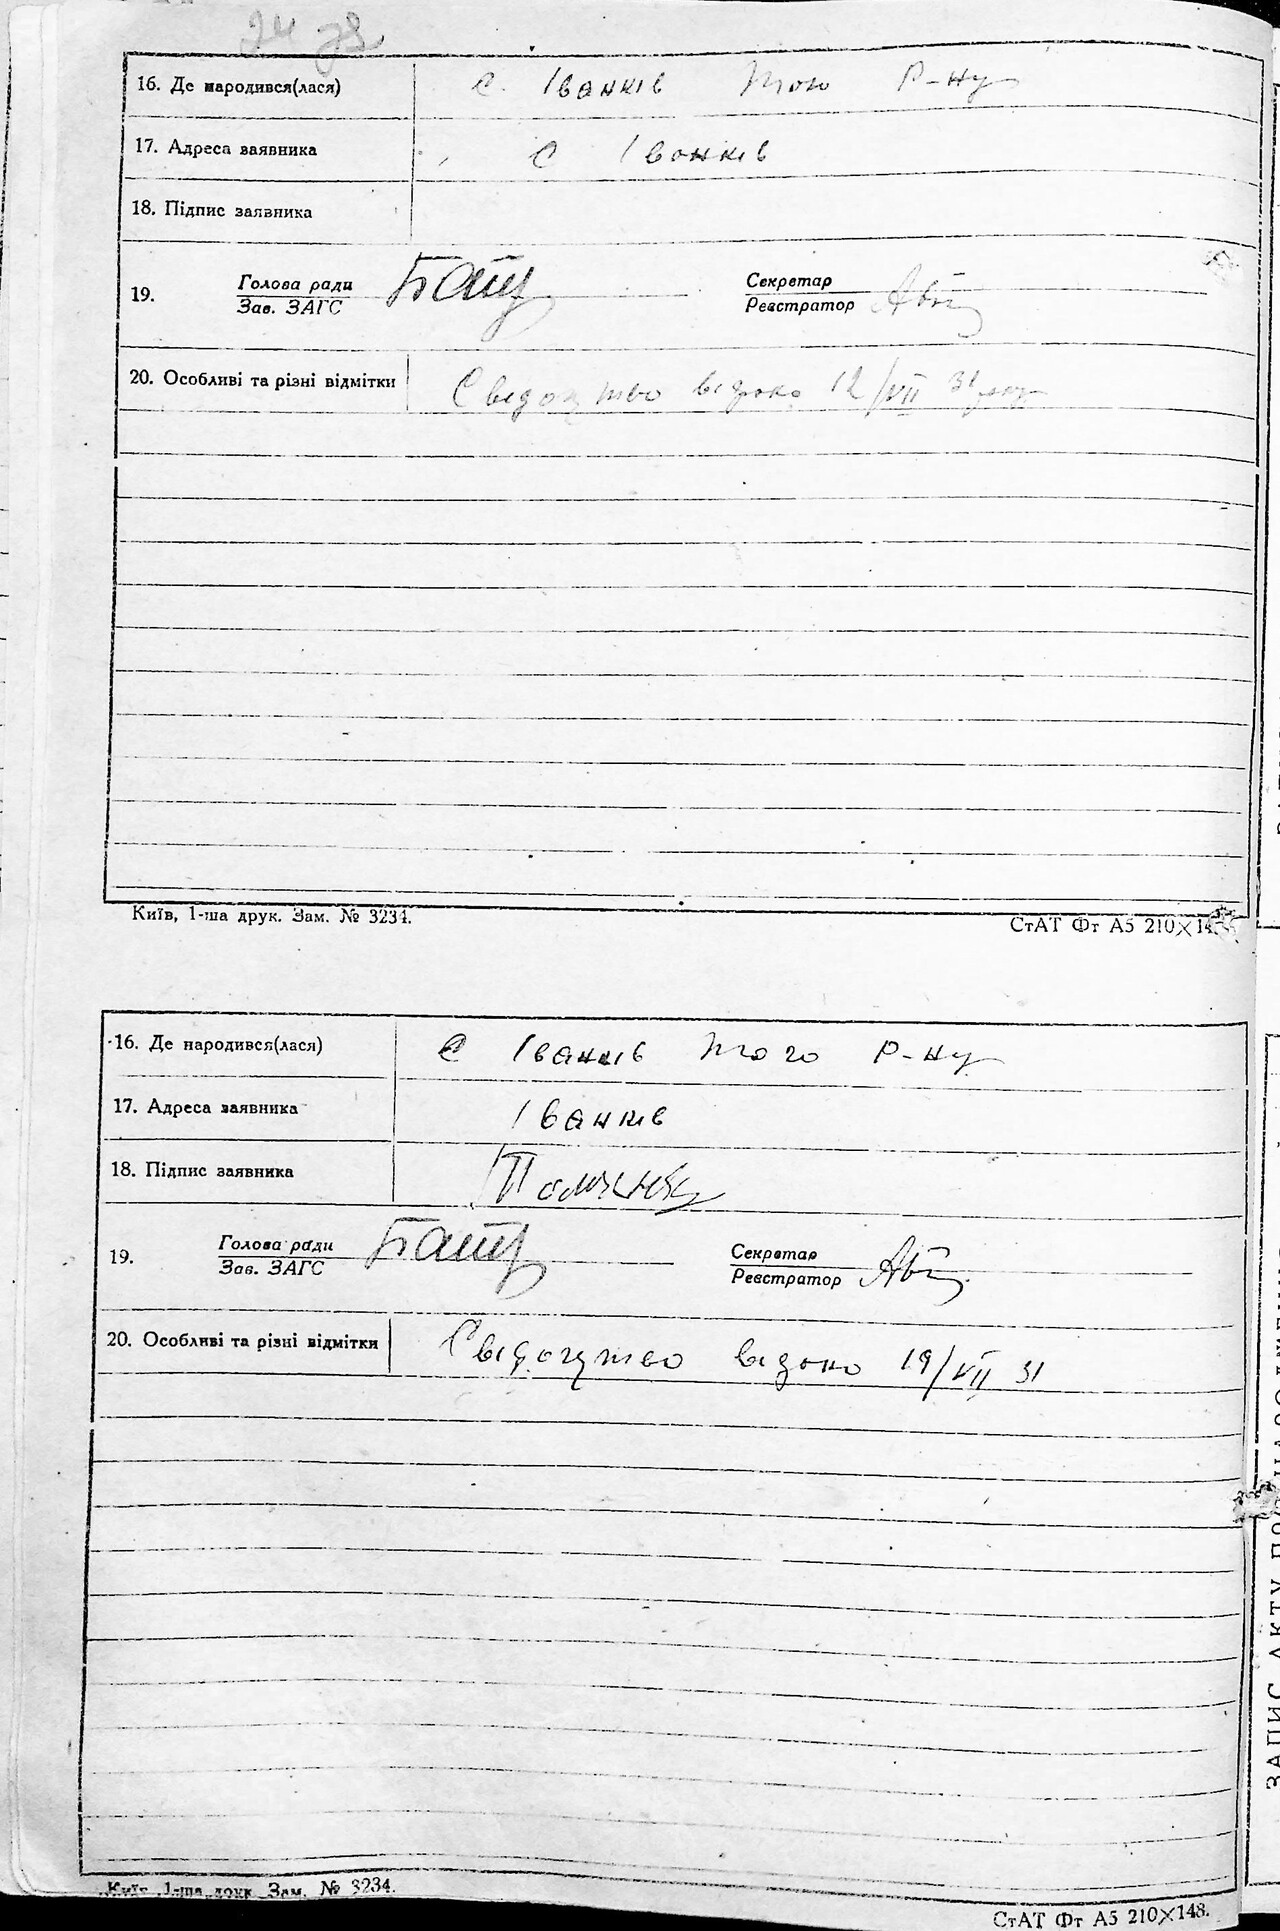 16. Де народився(лася) с. Іванків того р-ну
17. Адреса заявника с Іванків
18. Підпис заявника
19. Голова ради Секретар
Зав. ЗАГС Реєстратор
20. Особливі та різні відмітки Свідоцтво видано 12/VII 31
Київ, 1-ша друк. Зам. № 3234. СтАТ Фт А5 210×14
16. Де народився(лася) с Іванків того р-ну
17. Адреса заявника Іванків
18. Підпис заявника
19. Голова ради Секретар
Зав. ЗАГС Реєстратор
20. Особливі та різні відмітки Свідоцтво видано 19/VII 31
Київ 1-ша друк Зам. № 3234.
СтАТ Фт А5 210×148.